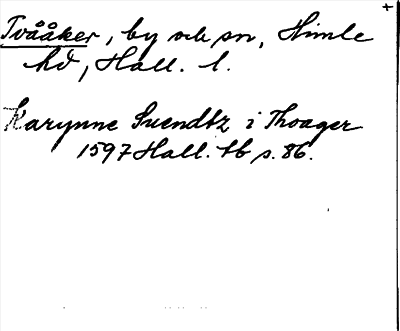 Tvååker, by och sn, Himle
hd, Hall. l.
Karynne Suendtz i Thoager
1597 Hall. tb s. 86.